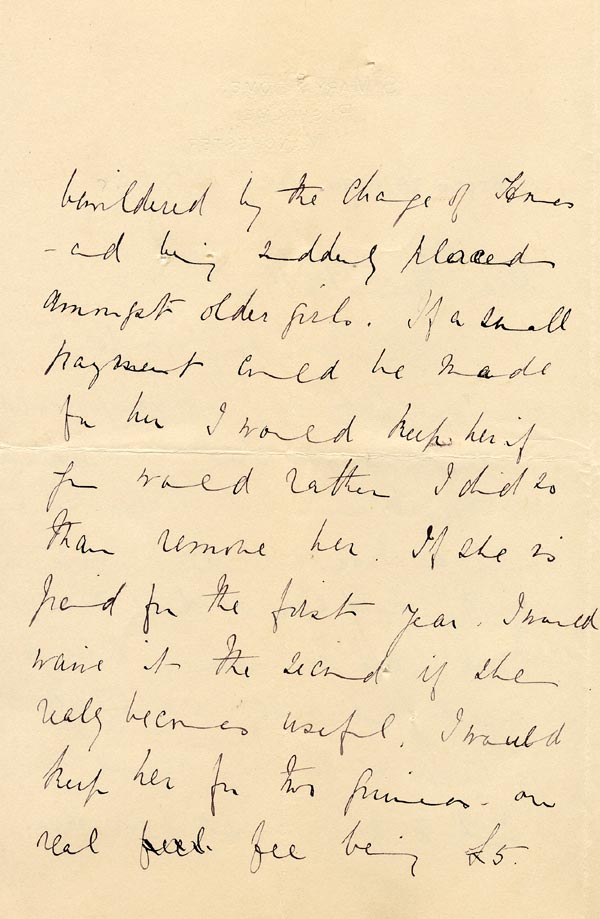 bewildered by the change of Homes
- and being suddenly placed
amongst older girls. If a small
payment could be made
for her I would keep her if
you would rather I did so
than remove her. If she is
paid for the first year. I would
waive it the second if she
really becomes useful. I would
keep her for two guineas - our
real fee being £5.